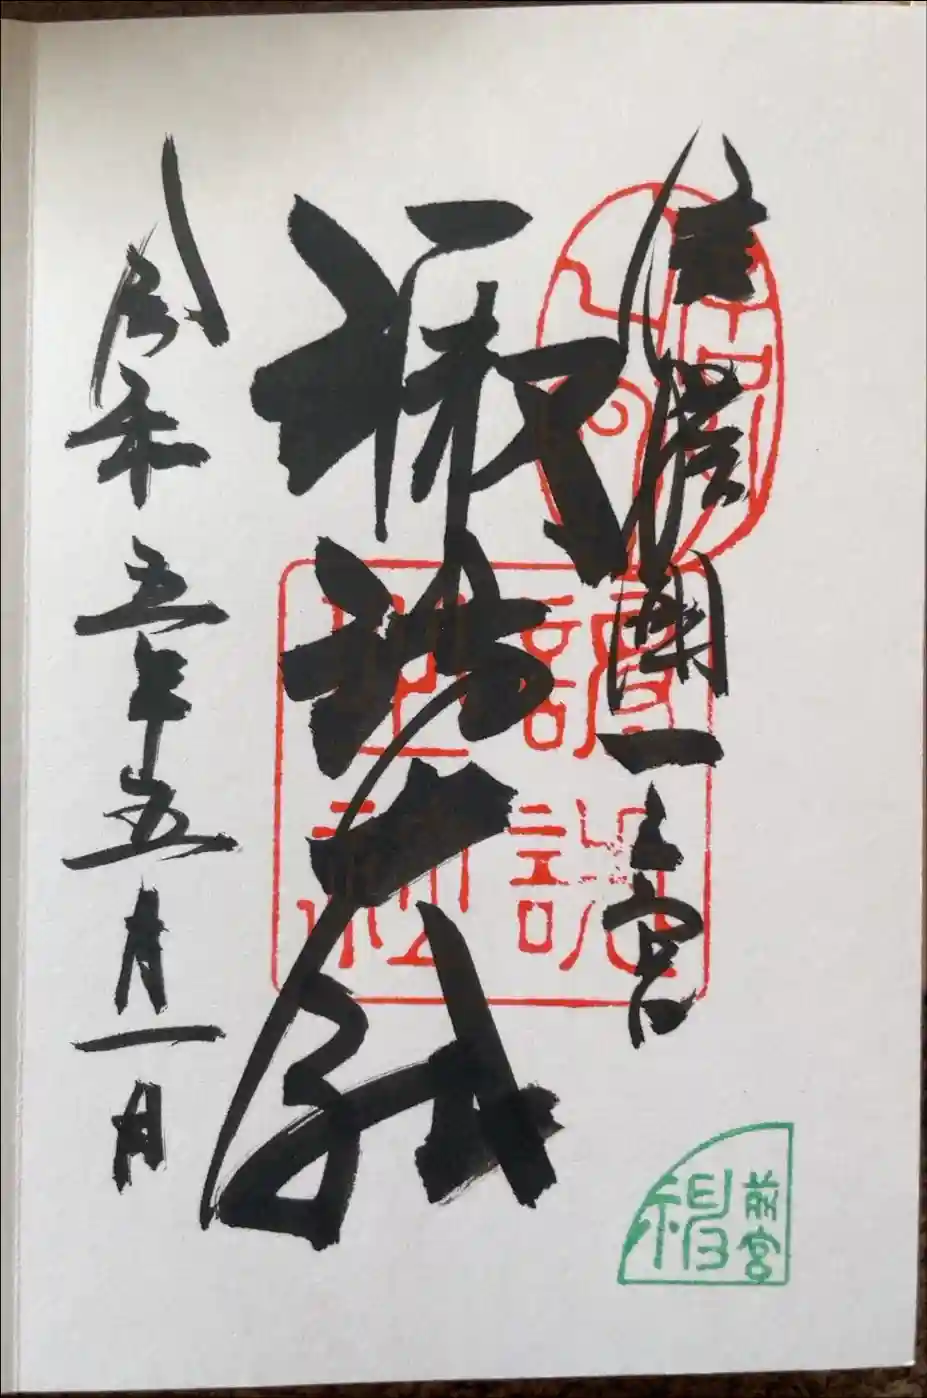 信濃國一之宮
諏訪大社
令和五年五月一日
前宮